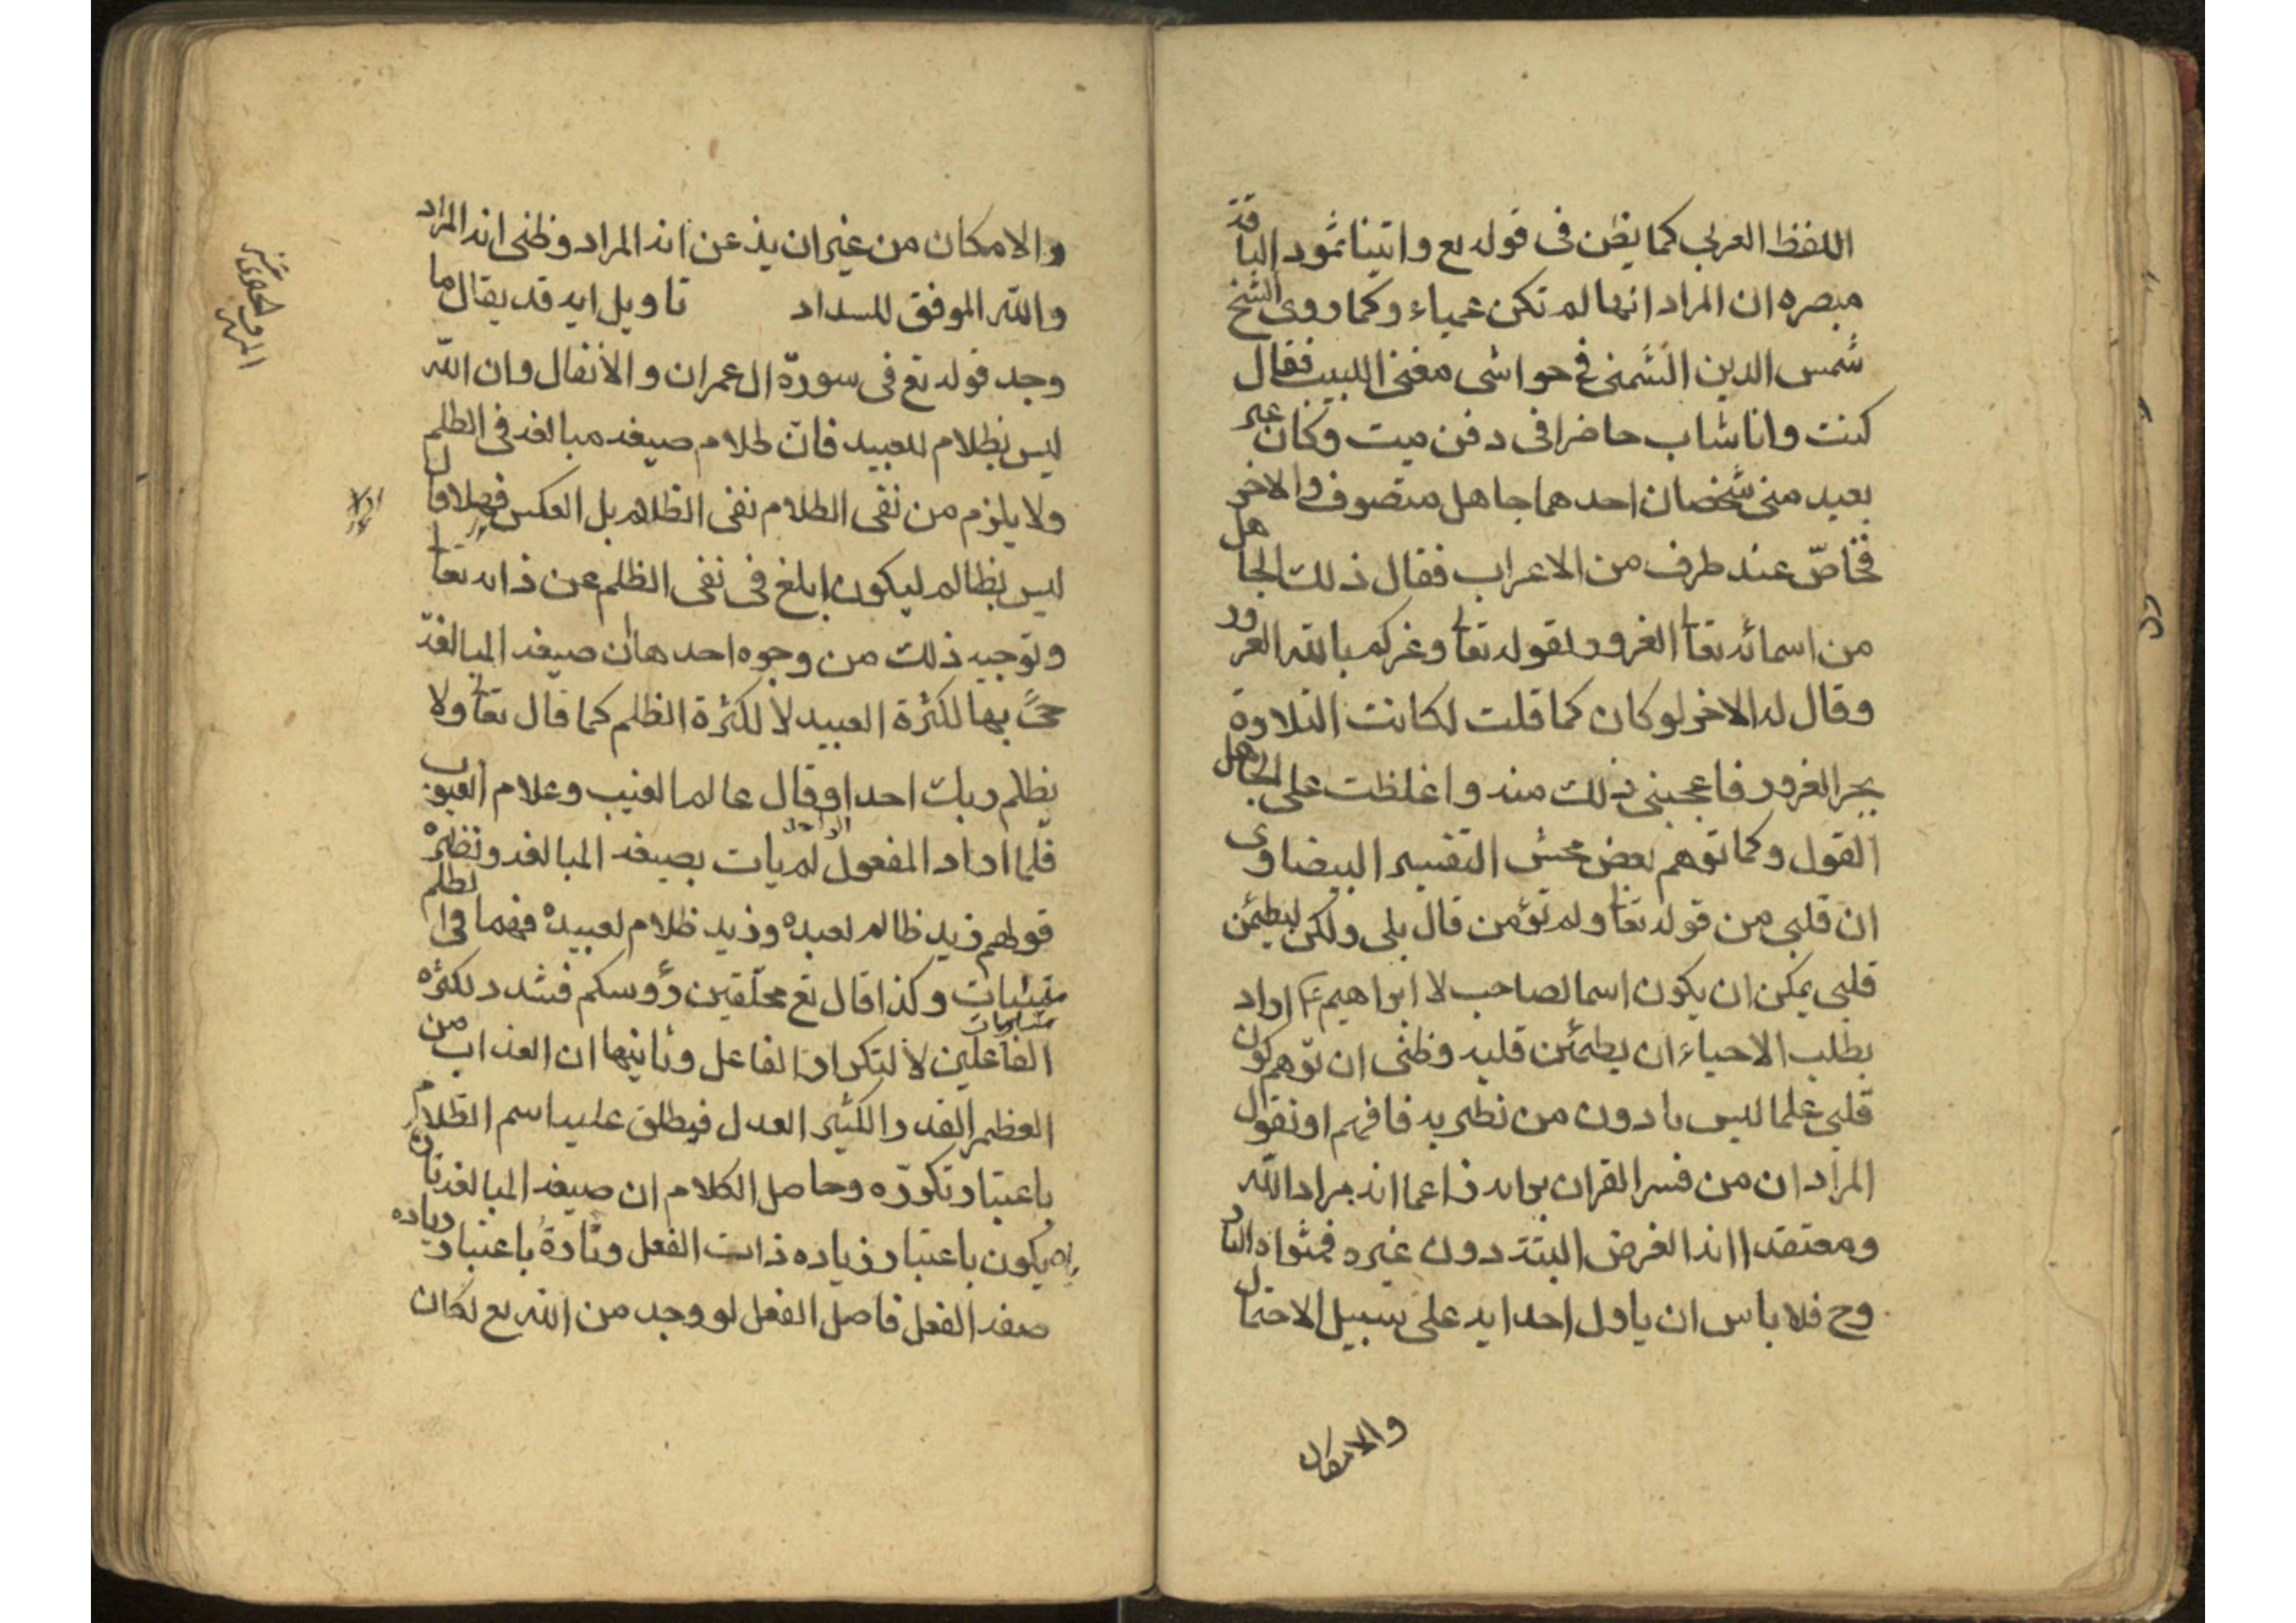 اللفظ العربي كما يظن في قوله تع واتينا ثمود الناقة
مبصره ان المراد انها لم تكن عمياء وكما روى الشيخ
شمس الدين الشمني في حواشي مغني اللبيب فقال
كنت وانا شاب حاضرا في دفن ميت وكان غير
بعيد مني شخصان احدهما جاهل متصوف والاخر
عند طرف من الاعراب فقال ذلك الجاهل
من اسمائه تعا الغرور لقوله تعا وغركم بالله الغرور
وقال له الاخر لو كان كما قلت لكانت التلاوة
بجر الغرور فاعجبني ذلك منه واغلظت على الجاهل
القول وكما توهم بعض محشى التفسير البيضاوى
ان قلبي من قوله تعا ولم تؤمن قال بلى ولكن ليطمئن
قلبي يمكن ان يكون اسما لصاحب لابراهيم اراد
بطلب الاحياء ان يطمئن قلبه وظني ان توهم كون
قلبي علما ليس بادون من نظيريه فافهم او نقول
المراد ان من فسر القران برايه زاعما انه مراد الله
ومعتقدا انه الغرض البتة دون غيره فمثواه النار
وح فلا باس ان ياول احد ايه على سبيل الاحتمال
والامكان
والامكان من غير ان يذعن انه المراد وظني انه المراد
والله الموفق للسداد تاويل ايه قد يقال ما
وجه قوله تع في سورة ال عمران والانفال وان الله
ليس بظلام للعبيد فان ظلام صيغه مبالغه في الظلم
ولا يلزم من نفي الظلام نفي الظالم بل العكس فهلا قال
ليس بظالم ليكون ابلغ في نفي الظلم عن ذاته تعا
وتوجيه ذلك من وجوه احدها ان صيغه المبالغة
جئ بها لكثرة العبيد لا لكثرة الظلم كما قال تعا ولا
يظلم ربك احدا وقال عالم الغيب وعلام الغيوب
فلما اراد المفعول الواحد لم يات بصيغه المبالغه ونظيره
قولهم زيد ظالم لعبده وزيد ظلام لعبيده فهما في الظلم
متشابهات
وكذا قال تع محلقين رؤوسكم فشدد لكثره
الفاعلين لا لتكرار الفاعل وثانيها ان العذاب من
العظيم القدر والكثير العدل فيطلق عليه اسم الظلام
باعتبار تكرره وحاصل الكلام ان صيغه المبالغه تارة
يكون باعتبار زياده ذات الفعل وتارة باعتبار زياده
صفه الفعل فاصل الفعل لو وجد من الله تع لكان